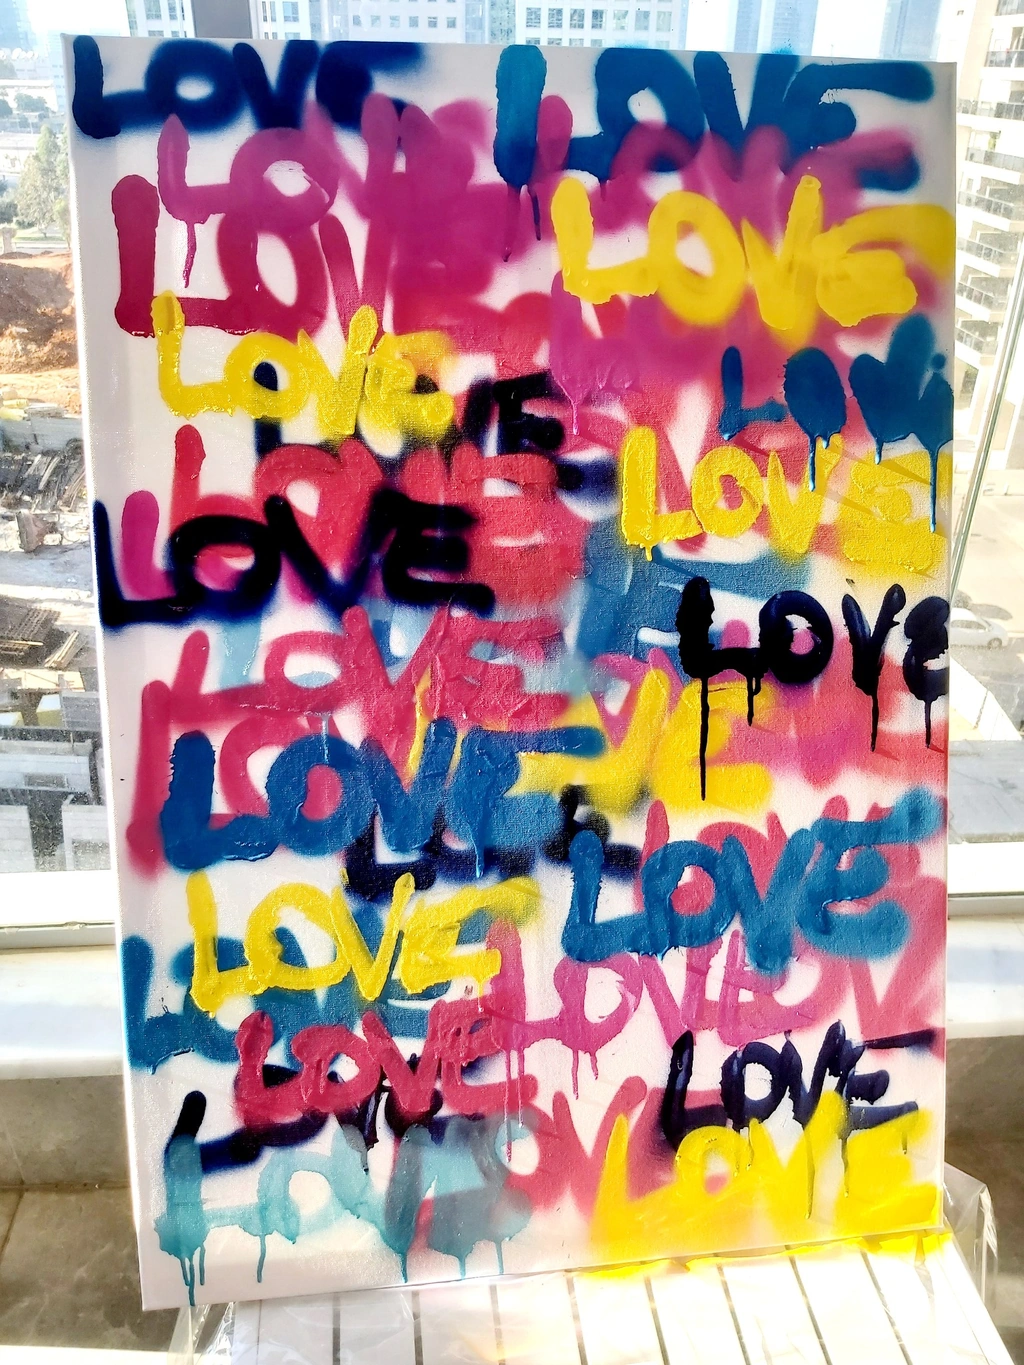 LOVE
LOVE
LOVE
LOVE
LOV
LOVE
LOV
LOVE
LOVE
LOVE
LOVE
LOVE
LOVE
VE
LOVE
LOVE
LOVE
LOVE
LOV
LOVE
LOVE
LOVE